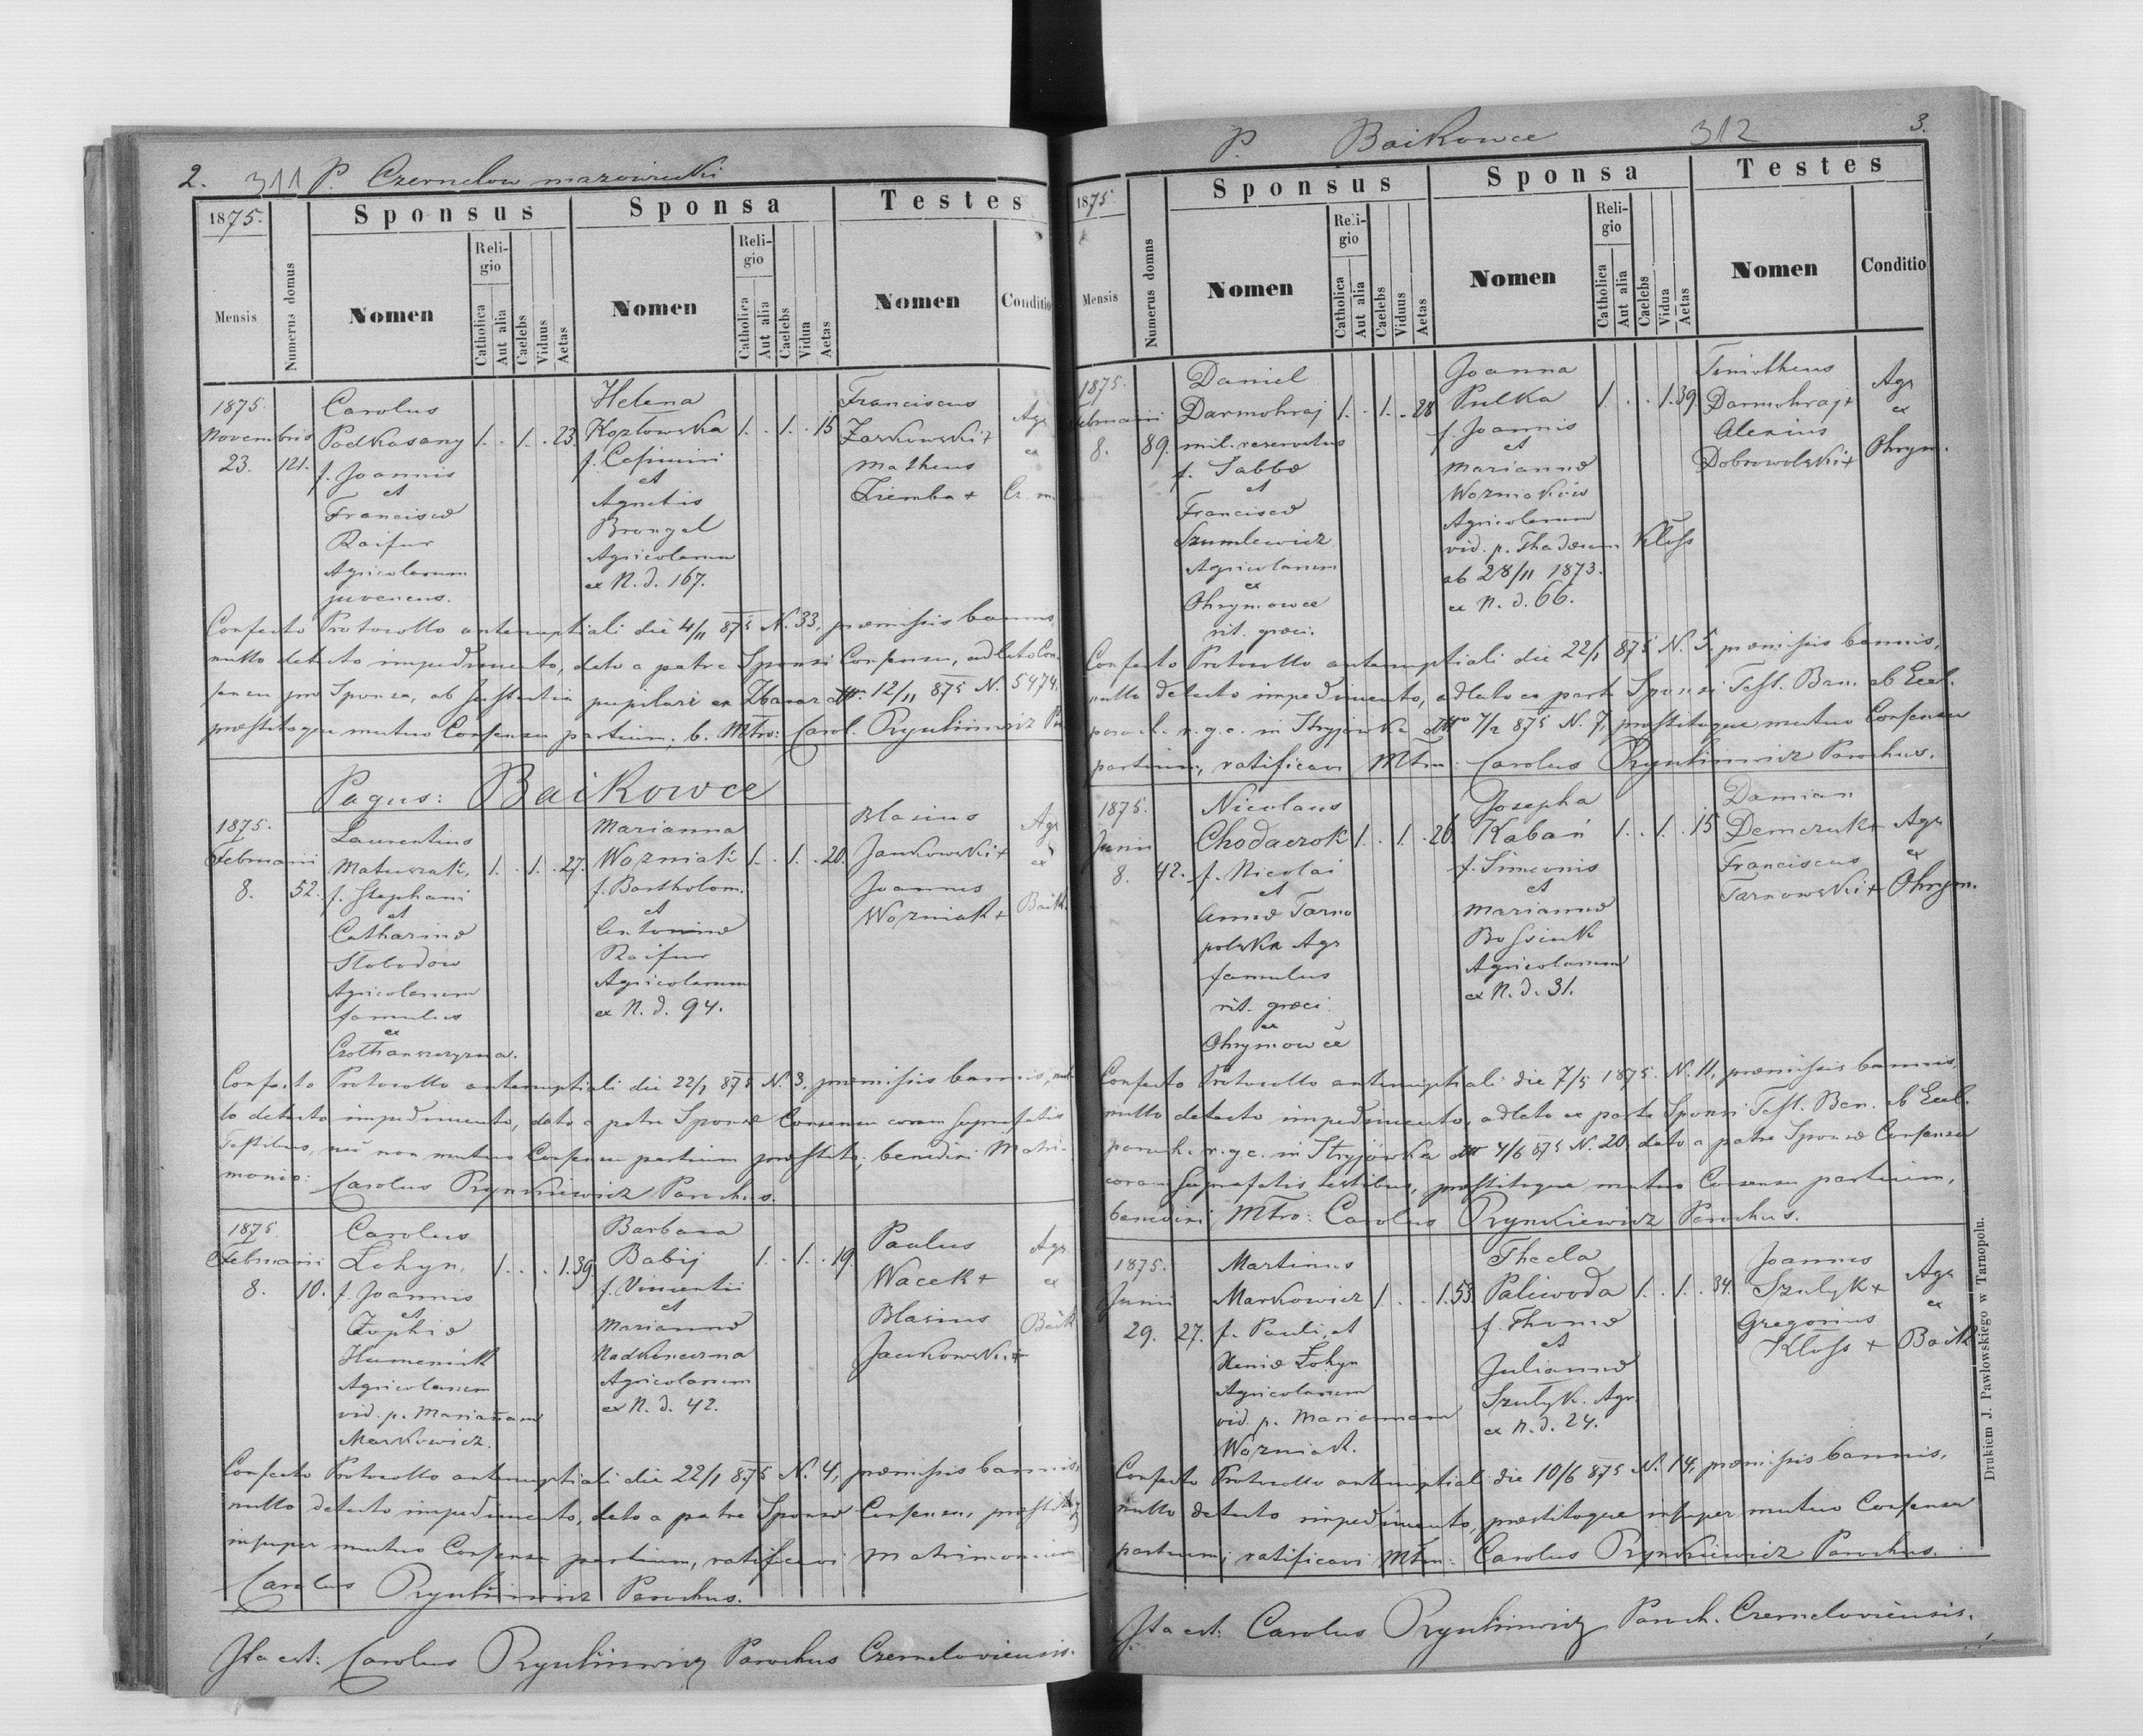 2. 311 P. Czernelow mazowiecki
1875.
Sponsus
Sponsa
Testes
Mensis
Numerus domus
Nomen
Religio
Catholica
Aut alia
Caelebs
Viduus
Aetas
Nomen
Religio
Catholica
Aut alia
Caelebs
Vidua
Aetas
Nomen
Conditio
1875.
Novembris
23. 121.
Carolus
Podkasany 1. . 1. . 23
f. Joannis
et
Franciscæ
Raifur
Agricolarum
juvencus.
Helena
Kozłowska 1. . 1. . 15
f. Casimiri
et
Agnetis
Brongel
Agricolarum
ex N. d. 167.
Franciscus
Żarkowski +
Matheus
Ziemba +
Agr
ex
Cz. m.
Confecto Protocollo antenuptiali die 4/11 875 N. 33, præmissis bannis,
nullo detecto impedimento, dato a patre Sponsi Consensu, adlato Con-
sensu pro Sponsa, ab Instantia pupilari ex Zbaraz dtto. 12/11 875 N. 5474.
præstitoque mutuo Consensu partium, b. Mtro: Carol. Rynkiewicz
Pagus: Baikowce
1875.
Februarii
8. 52.
Laurentius
Matuszak, 1. . 1. . 27.
f. Stephani
et
Catharinæ
Slobodow
Agricolarum
famulus
ex
Czołhanszczyzna.
Marianna
Wozniak 1. . 1. . 20.
f. Bartholom.
et
Antoninæ
Raifur
Agricolarum
ex N. d. 94.
Blasius
Jankowski +
Joannes
Wozniak +
Agr
ex
Baik.
Confecto Protocollo antenuptiali die 22/1 875 N. 3, præmissis bannis, nul-
lo detecto impedimento, dato a patre Sponsæ Consensu coram suprafatis
Testibus, nec non mutuo Consensu partium præstito, benedixi Matri-
monio: Carolus Rynkiewicz Parochus.
1875.
Februarii
8. 10.
Carolus
Łohyn, 1. . . 1. 39
f. Joannis
et
Zophiæ
Humeniuk
Agricolarum
vid. p. Mariannam
Markowicz.
Barbara
Babij 1. . 1. . 19
f. Vincentii
et
Mariannæ
Nadkonczna
Agricolarum
ex N. d. 42.
Paulus
Wacek +
Blasius
Jankowski +
Agr
ex
Baik
Confecto Protocollo antenuptiali die 22/1 875 N. 4, præmissis bannis,
nullo detecto impedimento, dato a patre Sponsæ Consensu, præstitoq
insuper mutuo Consensu partium, ratificavi Matrimonium
Carolus Rynkiewicz Parochus.
Ita est: Carolus Rynkiewicz Parochus Czerneloviensis.
P. Baikowce 312 3.
1875
Sponsus
Sponsa
Testes
Mensis
Numerus domus
Nomen
Religio
Catholica
Aut alia
Caelebs
Viduus
Aetas
Nomen
Religio
Catholica
Aut alia
Caelebs
Vidua
Aetas
Nomen
Conditio
1875.
Februarii
8. 89.
Daniel
Darmohraj 1. . 1. . 28
mil. reservatus
f. Sabbæ
et
Franciscæ
Szumlewicz
Agricolarum
ex
Ohrymowce
rit. græci.
Joanna
Pulka 1. . . 1. 39
f. Joannis
et
Mariannæ
Wozniaków
Agricolarum
vid. p. Thadæum Kloss
ab 28/11 1873.
ex N. d. 66.
Timotheus
Darmohraj +
Alexius
Dobrowolski +
Agr
ex
Ohrym.
Confecto Protocollo antenuptiali die 22/1 875 N. 5. præmissis bannis,
nullo detecto impedimento, adlato ex parte Sponsi Test. Ban. ab Eccl.
paroch. r. g. c. in Stryjówka dtto 7/2 875 N. 7, præstitoque mutuo Consensu
partium, ratificavi Mtm: Carolus Rynkiewicz Parochus.
1875.
Junii
8. 42.
Nicolaus
Chodaczok 1. . 1. . 26
f. Nicolai
et
Annæ Tarno
polska Agr
famulus
rit. græci
ex
Ohrymowce
Josepha
Kabań 1. . 1. . 15
f. Simeonis
et
Mariannæ
Bossiuk
Agricolarum
ex N. d. 31.
Damian
Demczuk +
Franciscus
Tarnowski +
Agr
ex
Ohrym.
Confecto Protocollo antenuptiali die 7/5 1875. N. 11, præmissis bannis,
nullo detecto impedimento, adlato ex parte Sponsi Test. Ban. ab Eccl.
paroch. r. g. c. in Stryjówka dtto 4/6 875 N. 20, dato a patre Sponsæ Consensu
coram suprafatis testibus, præstitoque mutuo Consensu partium,
benedixi Mtro: Carolus Rynkiewicz Parochus.
1875.
Junii
29. 27.
Martinus
Markowicz 1. . . 1. 53.
f. Pauli, et
Xeniæ Łohyn
Agricolarum
vid. p. Mariannam
Wozniak.
Thecla
Paliwoda 1. . 1. . 34.
f. Thomæ
et
Juliannæ
Szułyk. Agr
ex N. d. 24.
Joannes
Szulyk +
Gregorius
Kloss +
Agr
ex
Baik
Confecto Protocollo antenuptiali die 10/6 875 N. 14, præmissis bannis,
nullo detecto impedimento, præstitoque insuper mutuo Consensu
partium; ratificavi Mtm: Carolus Rynkiewicz Parochus.
Ita est: Carolus Rynkiewicz Paroch. Czerneloviensis.
Drukiem J. Pawłowskiego w Tarnopolu.